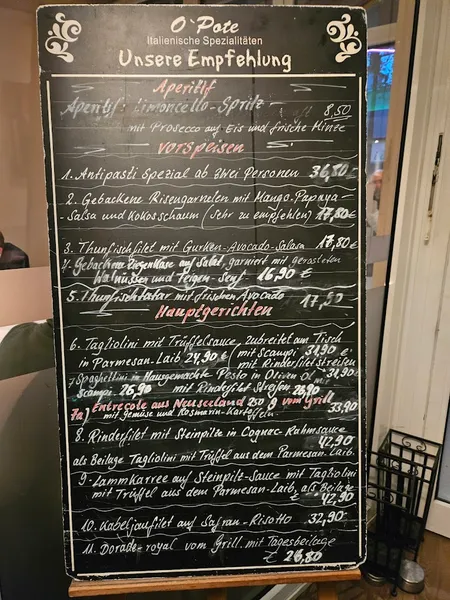 O'Pote
Italienische Spezialitäten
Unsere Empfehlung
Aperitif
Aperitif: Limoncello-Spritz 8,50
mit Prosecco auf Eis und frische Minze
Vorspeisen
1. Antipasti Spezial ab zwei Personen 36,80
2. Gebackene Riesengarnelen mit Mango-Papaya-
Salsa und Kokosschaum (Sehr zu empfehlen) 17,80€
3. Thunfischfilet mit Gurken-Avocado-Salasa 17,80€
4. Gebackene Ziegenkäse auf Salat, garniert mit gerösteten
Walnüssen und Feigen-Senf 16,90 €
5. Thunfischtatar mit frischen Avocado 17,90
Hauptgerichten
6. Tagliolini mit Trüffelsauce, zubereitet am Tisch
in Parmesan-Laib 24,90 € (mit Scampi 31,90 €
mit Rinderfilet Streifen
7 Spaghettini in Hausgemachte Pesto in Oliven Öl mit 31,90€
Scampi. 26,90 mit Rinderfilet Streifen 26,90
7a, Entrecote aus Neuseeland 250 g vom Grill
mit Gemüse und Rosmarin-Kartoffeln 33,90
8. Rinderfilet mit Steinpilze in Cognac-Rahmsauce
42,90
als Beilage Tagliolini mit Trüffel aus dem Parmesan-Laib.
9. Lammkarree auf Steinpilz-Sauce mit Tagliolini
mit Trüffel aus dem Parmesan-Laib, als Beilage
€ 42,90
10. Kabeljaufilet auf Safran-Risotto 32,90
11. Dorade-royal vom Grill mit Tagesbeilage
€ 26,80